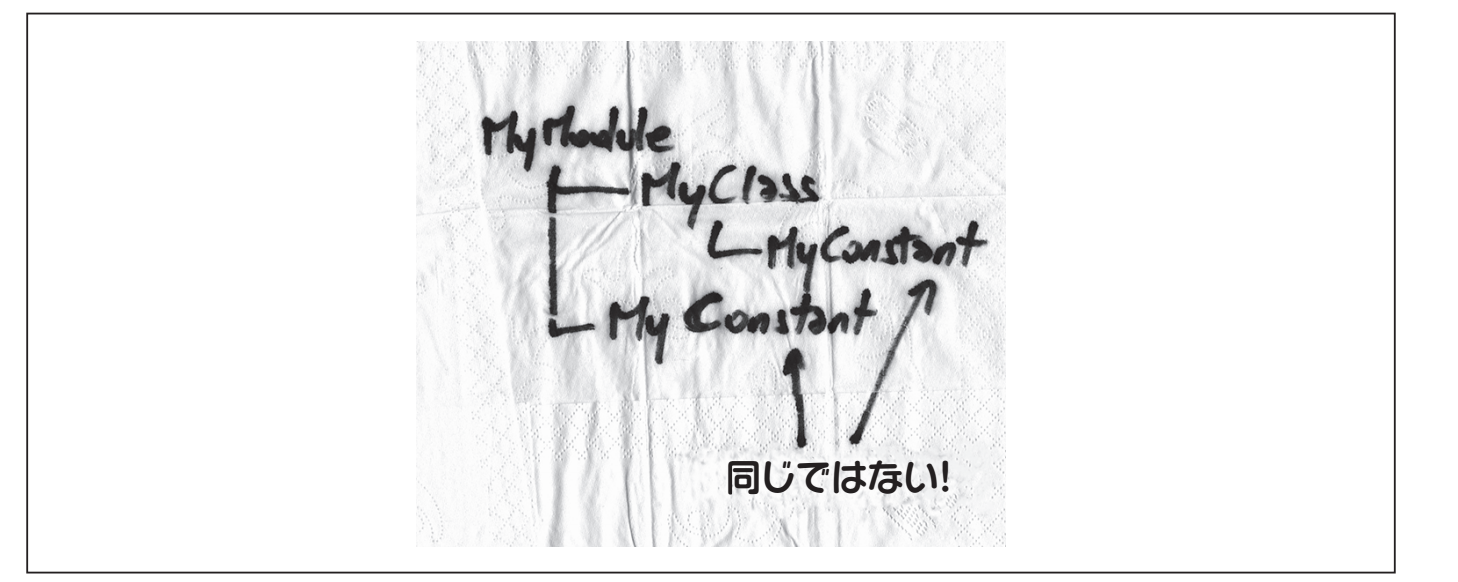 MyModule
MyClass
MyConstant
My Constant
同じではない!